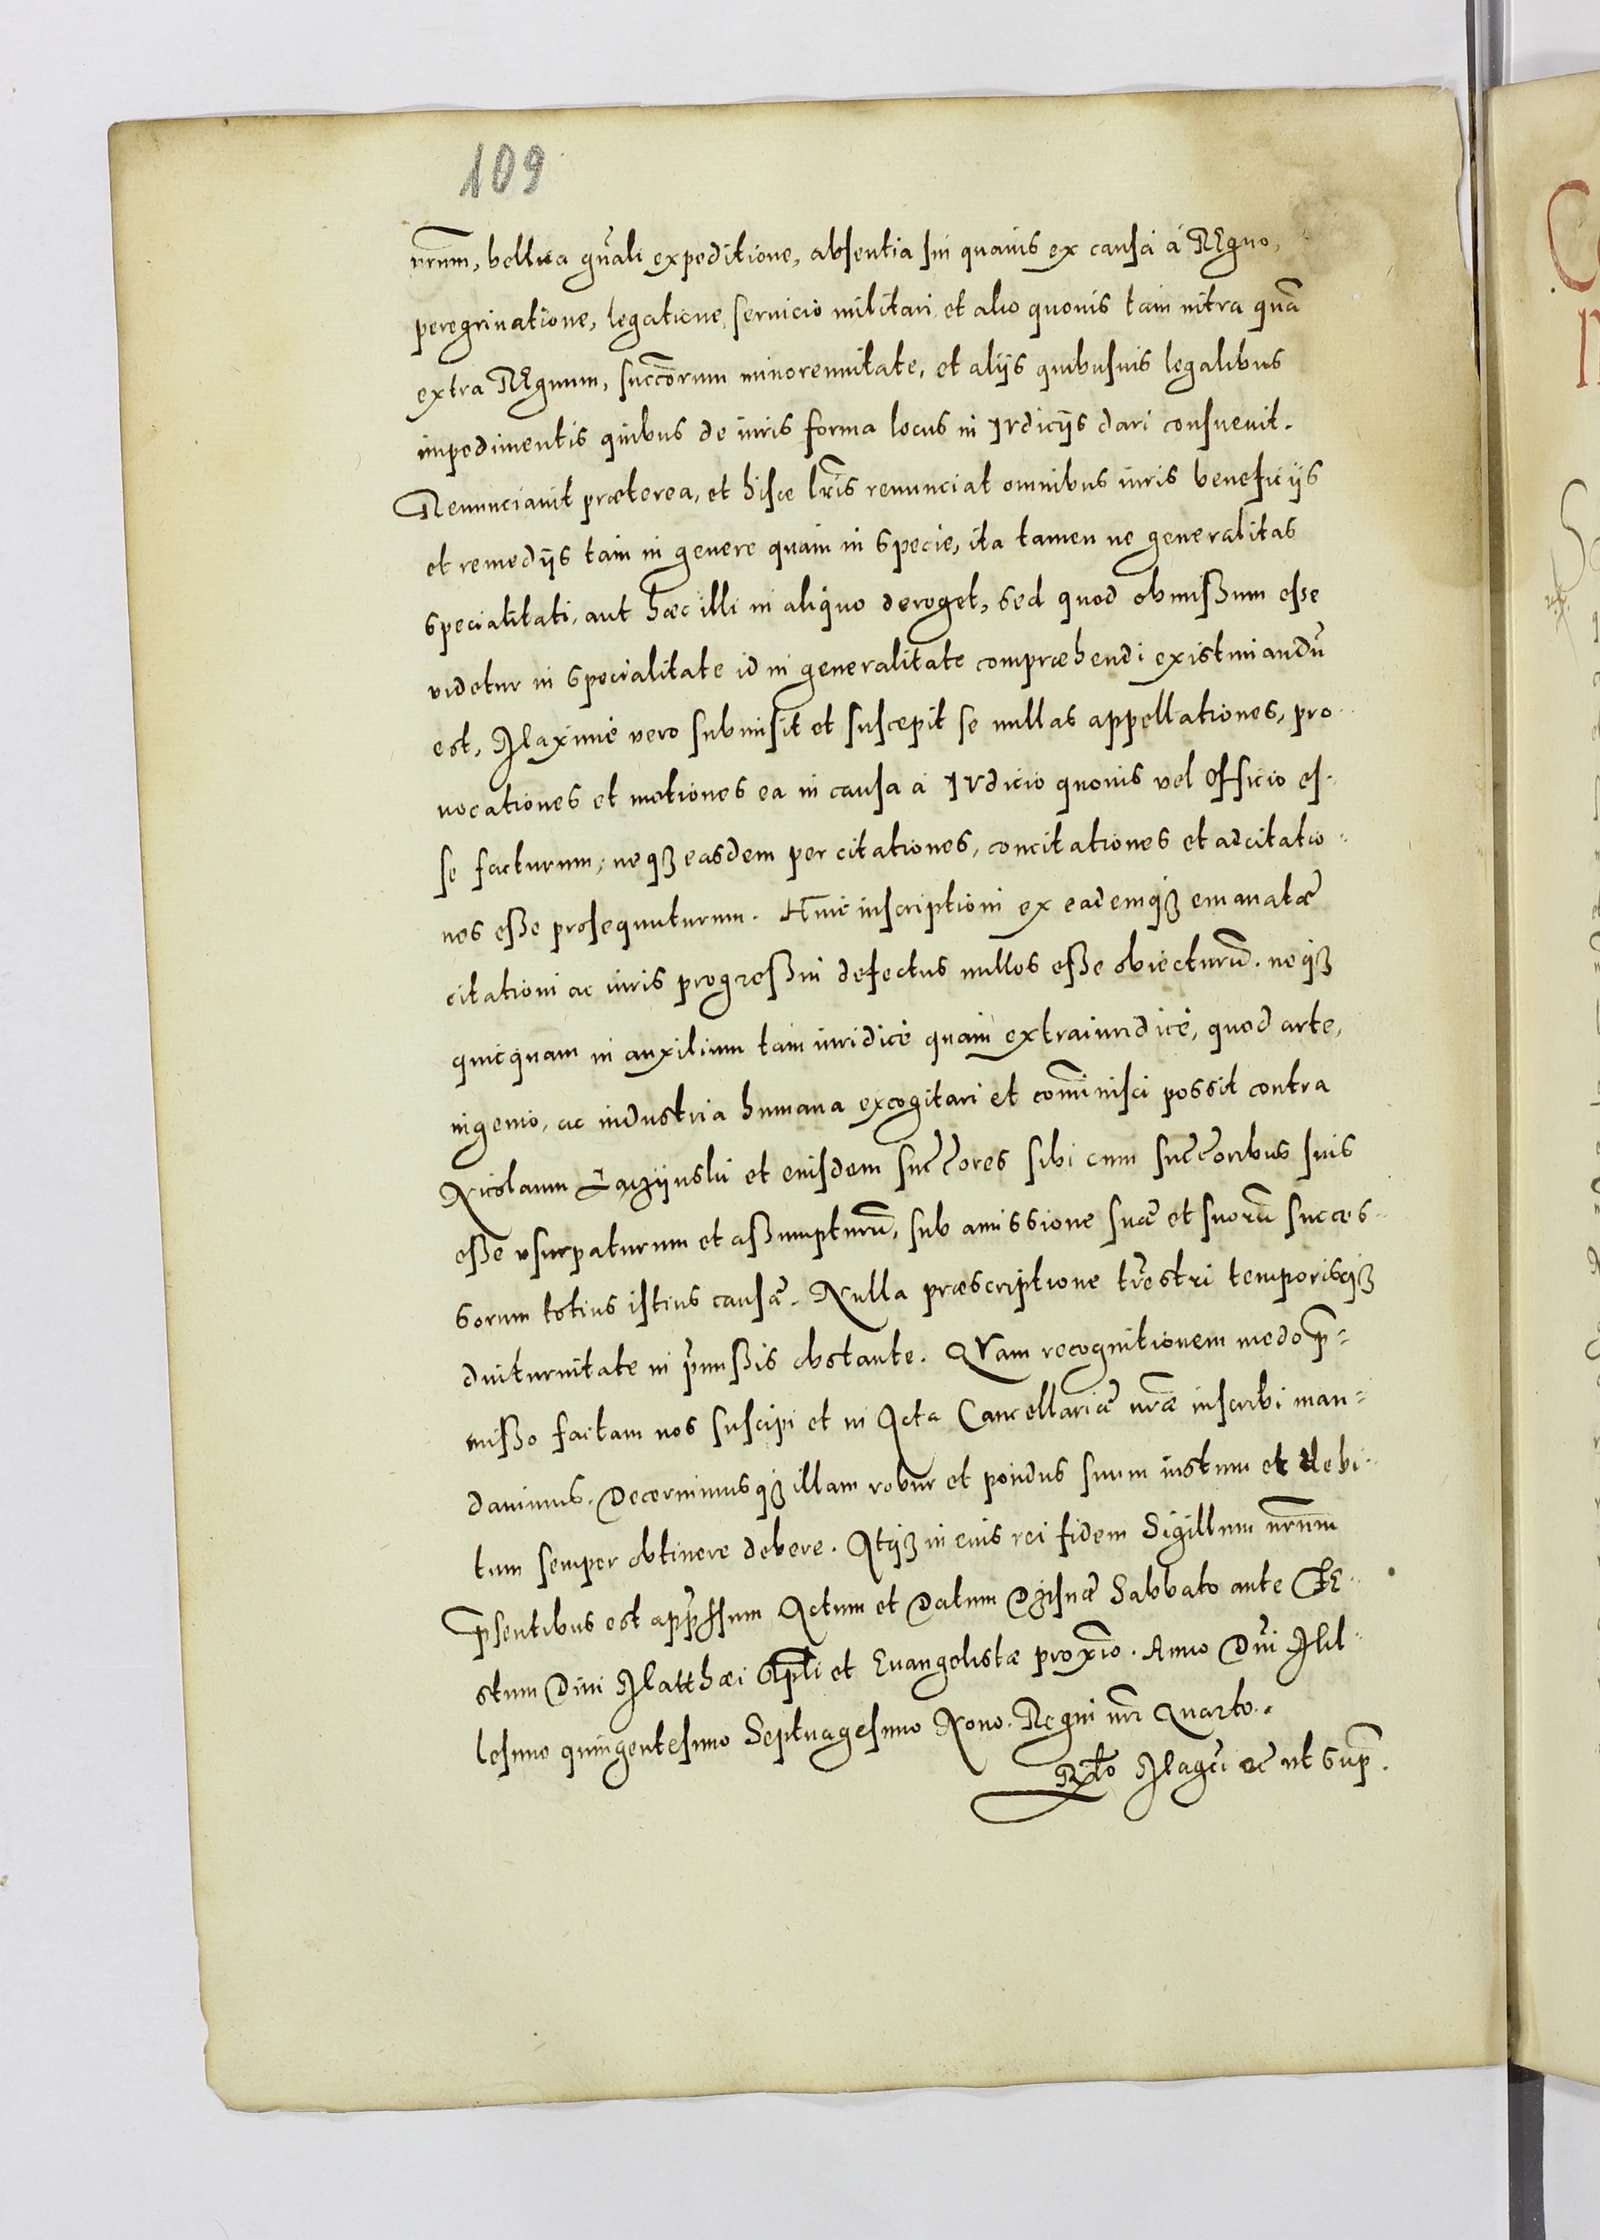 109
nrũm, bellica gñali expeditione, absentia sui quauis ex causá á REgno,
peregrinatione, legatione, seruicio militari, et alio quouis tam intra quã
extra REgnum, succõrum minorennitate, et aliis quibusuis legalibus
impedimentis quibus de iuris forma locus in IVdiciis dari consueuit.
Renunciauit præterea, et hisce lr̃is renunciat omnibus iuris beneficiis
et remediis tam in genere quam in specie, ita tamen ne generalitas
specialitati, aut hæc illi in aliquo deroget, sed quod obmißum esse
videtur in specialitate id in generalitate compræhendi existimandũ
est, Maximé vero submisit et suscepit se nullas appellationes, pro-
uocationes et motiones ea in causa á IVdicio quouis vel officio es-
se facturum, neqȝ easdem per citationes, concitationes et adcitatio-
nes eße prosequuturum. Huic inscriptioni ex eademqȝ emanatæ
citationi ac iuris progreßui defectus nullos eße obiecturũ. neqȝ
quicquam in auxilium tam iuridicé quam extraiuridicé, quod arte,
ingenio, ac industria humana excogitari et com̃inisci possit contra
Nicolaum et eiusdem succ̃ores sibi cum succ̃oribus suis
eße vsurpaturum et aßumpturũ, sub amissione suæ et suorũ succes-
sorum totius istius causæ. Nulla præscriptione tr̃estri temporisqȝ
diuturnitate in p̃mißis obstante. QVam recognitionem modo p̃-
mißo factam nos suscipi et in Acta Cancellariæ nr̃æ inscribi man-
dauimus. Decernimusqȝ illam robur et pondus suum iustum et debi-
tum semper obtinere debere. Atqȝ in eius rei fidem Sigillum nr̃um
p̃sentibus est app̃ssum Actum et Datum Dzisnæ Sabbato ante FE-
stum Diui Matthæi Ap̃li et Euangelistæ prox̃io. Anno Dñi Mil-
lesimo quingentesimo Septuagesimo Nono. Regni nr̃i Quarto.
Rl̃o Magci &c ut sup̃.